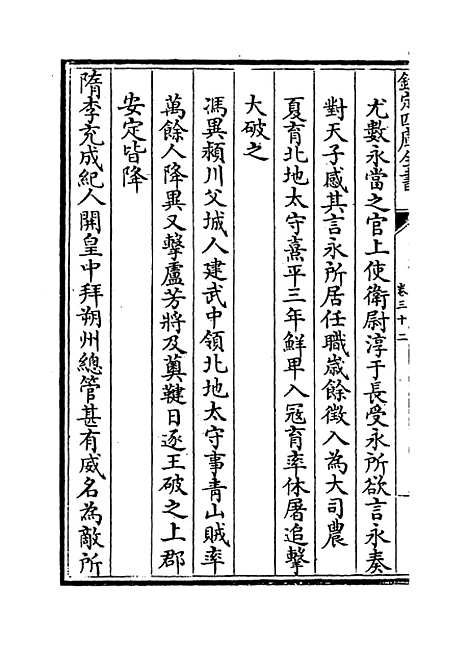 欽定四庫全書
卷三十二
尤數永當之官上使衛尉淳于長受永所欲言永奏
對天子感其言永所居任職歲餘徵入為大司農
夏育北地太守熹平三年鮮卑入寇育率休屠追擊
大破之
馮異潁川父城人建武中領北地太守事青山賊率
萬餘人降異又擊盧芳將及奠鞬日逐王破之上郡
安定皆降
隋李充成紀人開皇中拜朔州總管甚有威名為敵所